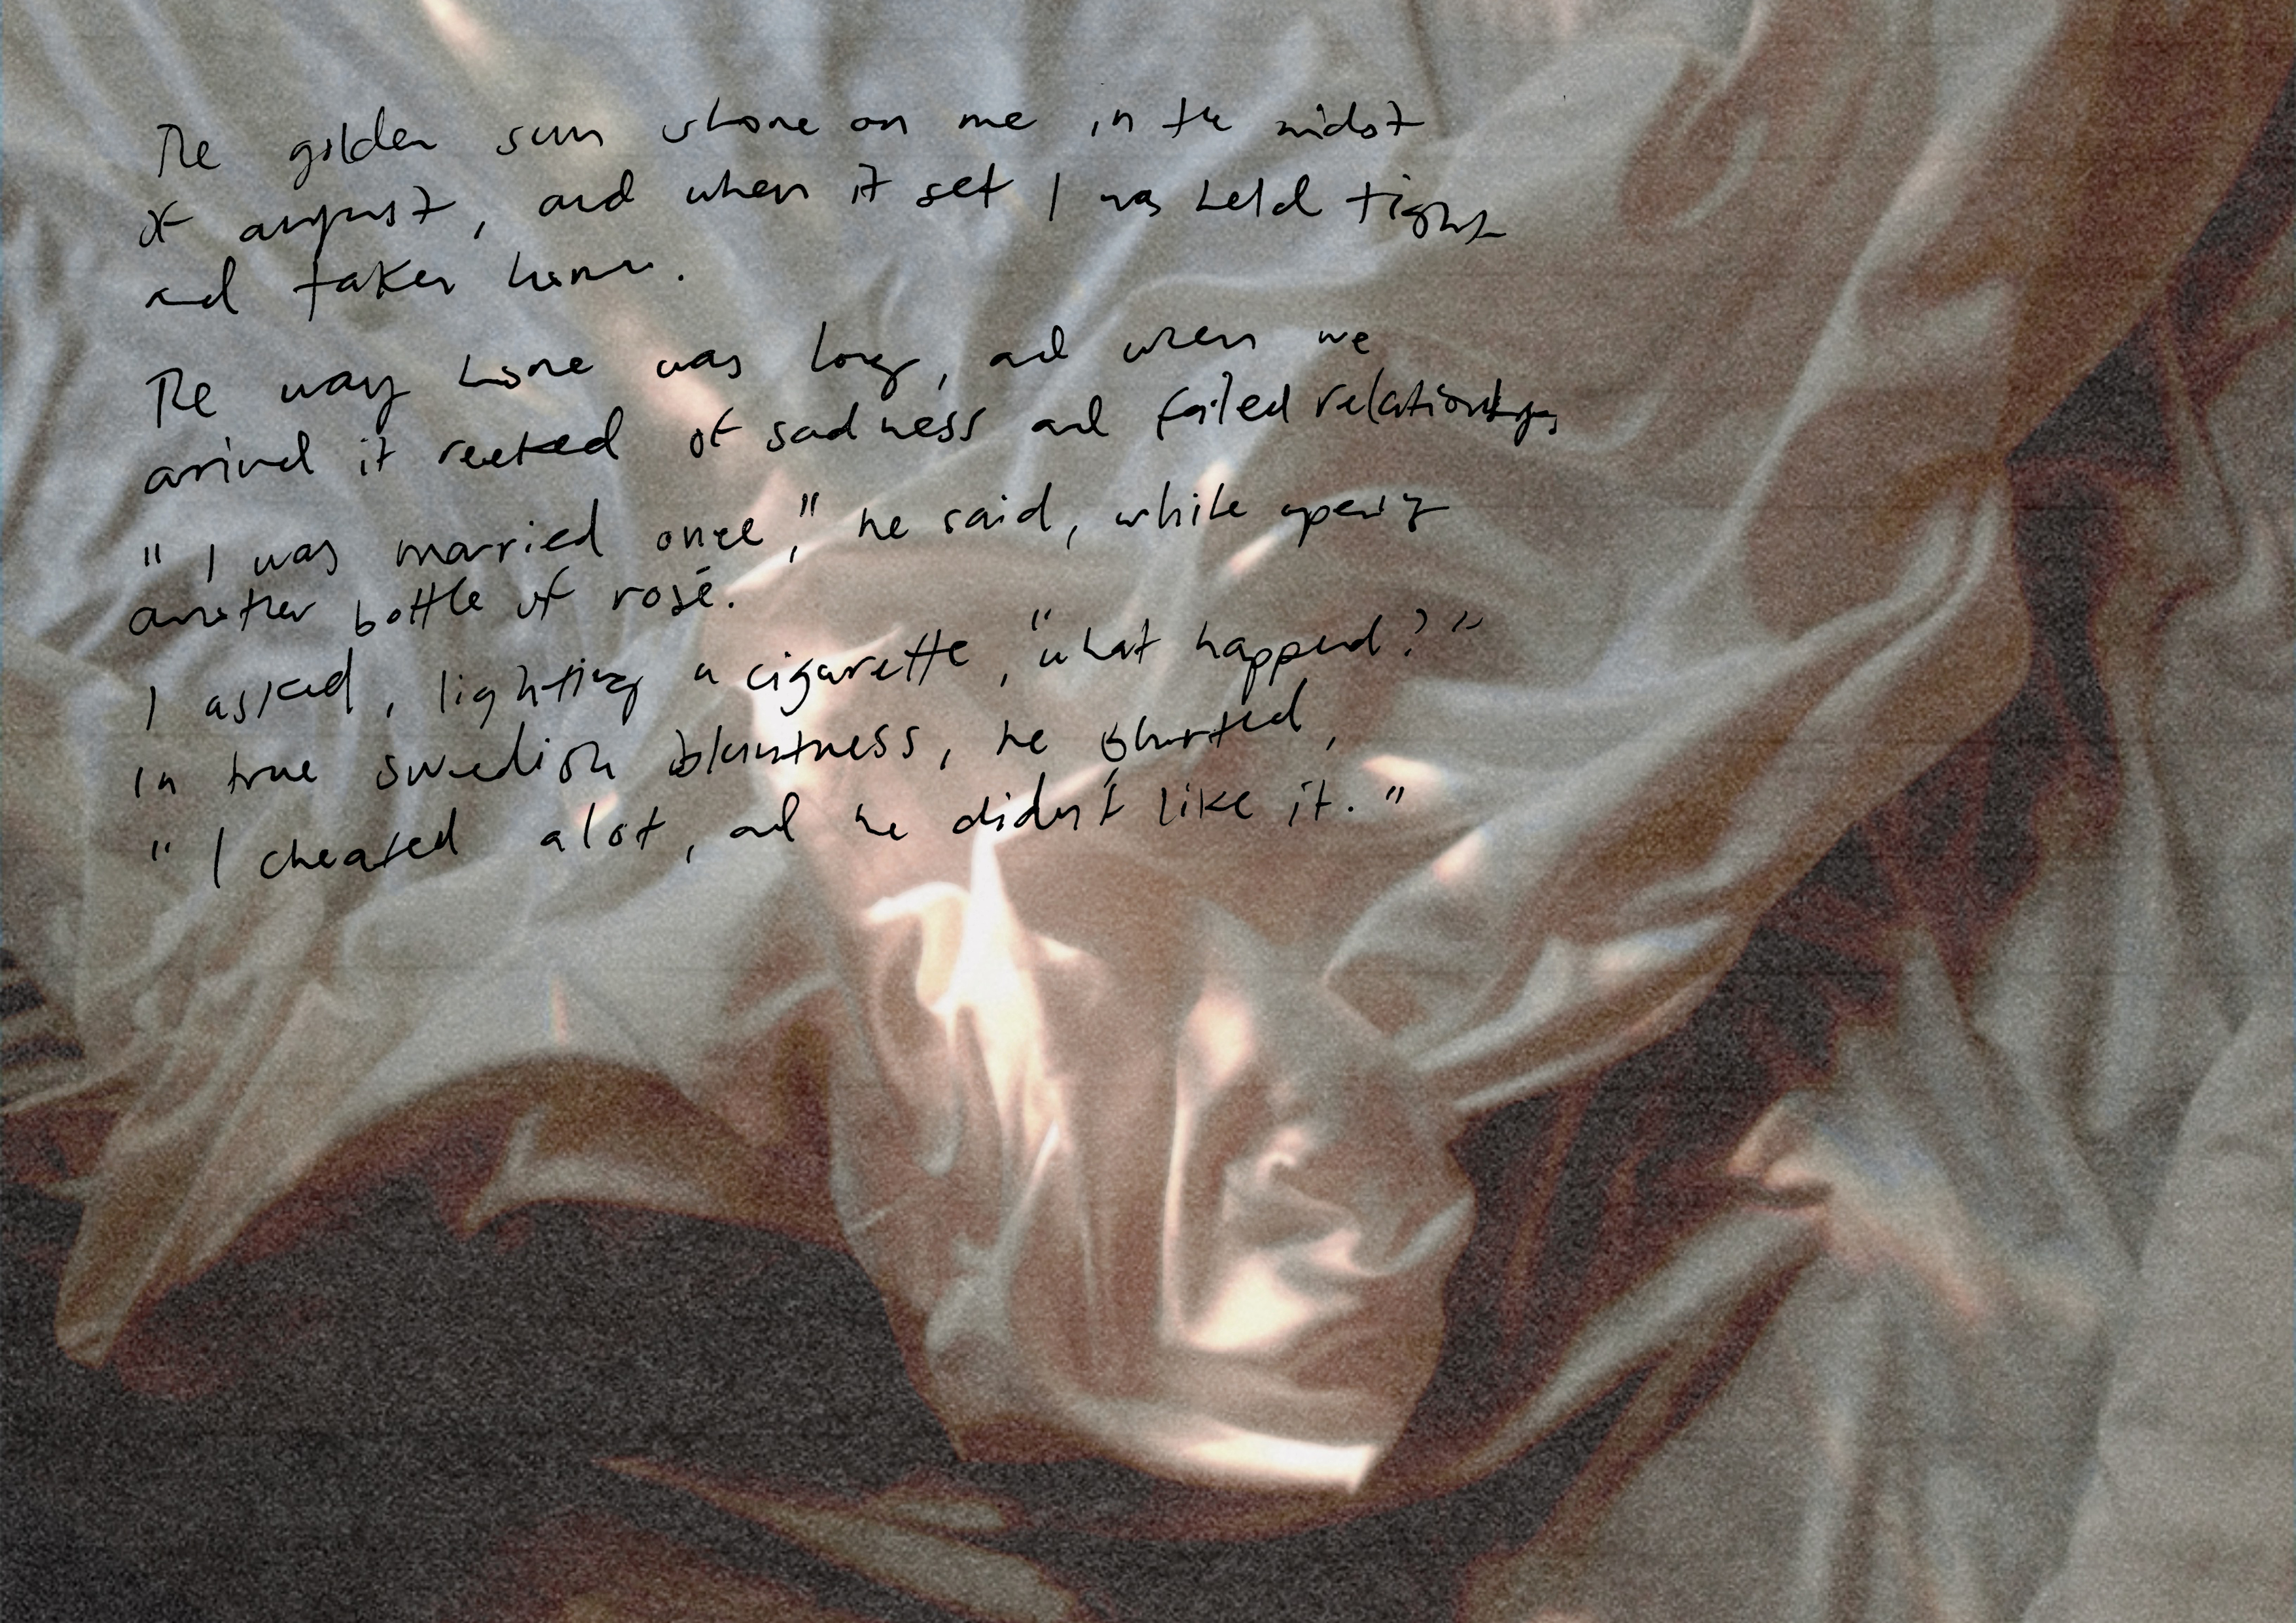 The golden sun shone on me in the midst
of august, and when it set I was held tight
and taken home.
The way home was long, and when we
arrived it reeked of sadness and failed relationships,
"I was married once," he said, while opening
another bottle of rosé.
I asked, lighting a cigarette, "what happened?"
In true swedish bluntness, he blurted,
"I cheated alot, and he didn't like it."